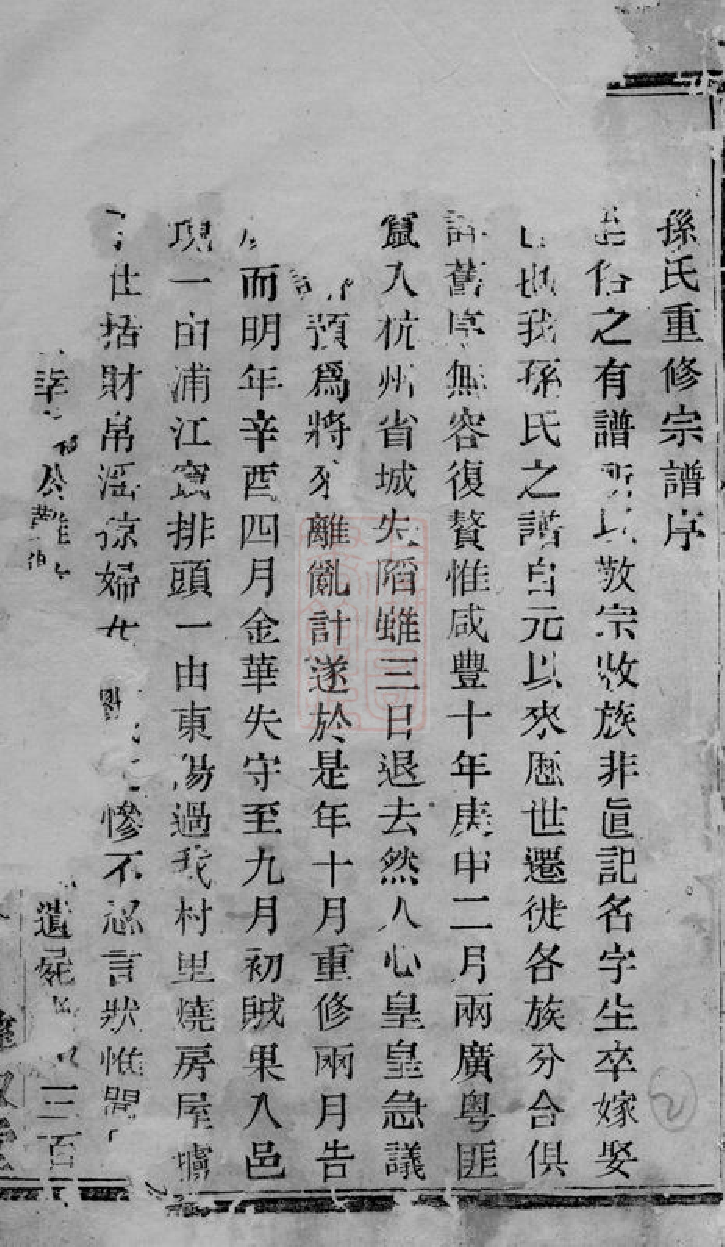 孫氏重修宗譜序
俗之有譜所以敬宗收族非直記名字生卒嫁娶
已也我孫氏之譜自元以來歷世遷徙各族分合俱
詳舊序無容復贅惟咸豐十年庚申二月兩廣粵匪
竄入杭州省城失陷雖三日退去然人心皇皇急議
預爲將來離亂計遂於是年十月重修兩月告
而明年辛酉四月金華失守至九月初賊果入邑
現一由浦江竄排頭一由東陽過我村里燒房屋擄
括財帛淫掠婦女慘不忍言狀惟
公難遺屍三百